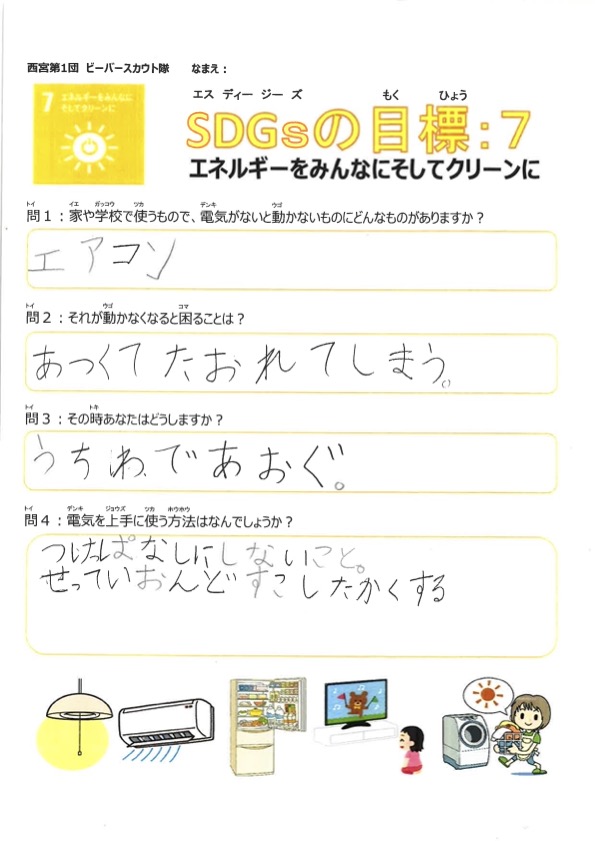 西宮第1団 ビーバースカウト隊 なまえ：
7 エネルギーをみんなに
そしてクリーンに
エス ディー ジー ズ もく ひょう
SDGsの目標：7
エネルギーをみんなにそしてクリーンに
トイ イエ ガッコウ ツカ デンキ ウゴ
問1：家や学校で使うもので、電気がないと動かないものにどんなものがありますか？
エアコン
トイ ウゴ コマ
問2：それが動かなくなると困ることは？
あつくてたおれてしまう。
トイ トキ
問3：その時あなたはどうしますか？
うちわであおぐ。
トイ デンキ ジョウズ ツカ ホウホウ
問4：電気を上手に使う方法はなんでしょうか？
つけっぱなしにしないこと。
せっていおんどすこしたかくする